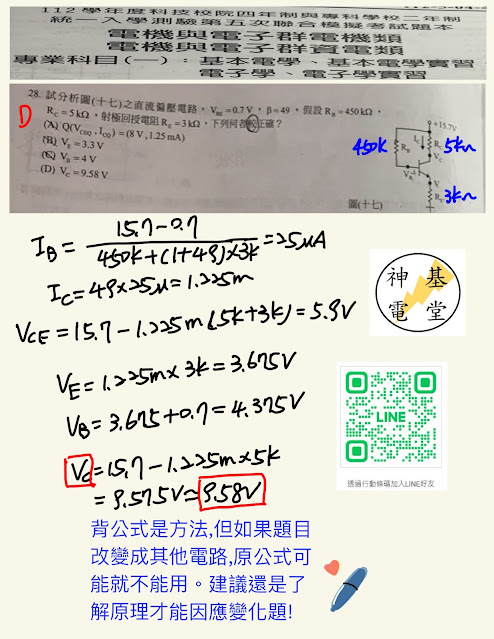 112學年度科技校院四年制與專科學校二年制
統一入學測驗第五次聯合模擬考試題本
電機與電子群電機類
電機與電子群資電類
專業科目(一)：基本電學、基本電學實習
電子學、電子學實習
D
28. 試分析圖(十七)之直流偏壓電路，VBE=0.7V，β=49，假設 RB=450kΩ，
RC=5kΩ，射極回授電阻 RE=3kΩ，下列何者較正確？
(A) Q(VCEQ, ICQ)=(8V, 1.25mA)
(B) VE=3.3V
(C) VB=4V
(D) VC=9.58V
+15.7V
450k RB IC RC 5kΩ
VC
VB
3kΩ
圖(十七)
IB = 15.7-0.7 / 450k+(1+49)×3k = 25μA
IC=49×25μ=1.225m
VCE=15.7-1.225m(5k+3k)=5.9V
VE=1.225m×3k=3.675V
VB=3.675+0.7=4.375V
VC=15.7-1.225m×5k
=9.575V≈9.58V
神 基
電 堂
LINE
透過行動條碼加入LINE好友
背公式是方法,但如果題目
改變成其他電路,原公式可
能就不能用。建議還是了
解原理才能因應變化題!